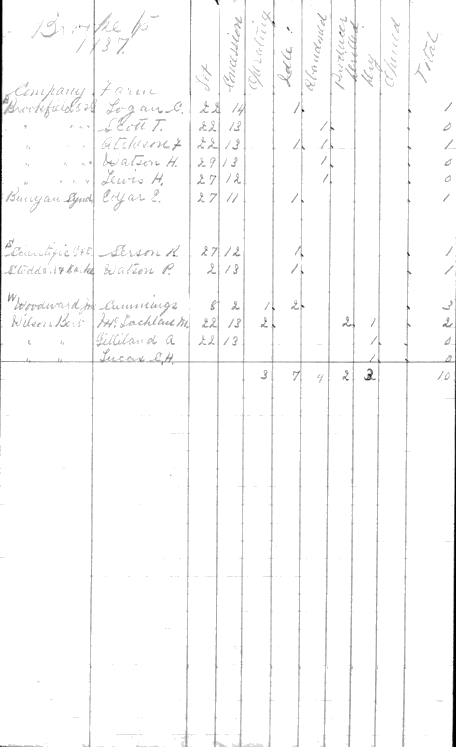 Brooke Tp
1937
Lot Concession Operating Idle Abandoned Producer Drilled Dry Total
Company Farm
B
Logan C. 22 14 1 1
" " Scott T. 22 13 1 0
" " 22 13 1 1 1
" " Watson H. 29 13 1 0
" " Lewis H. 27 12 1 0
Bunyan Synd Edgar E. 27 11 1 1
S
27 12 1 1
Watson P. 2 13 1 1
W
Woodward Cummings 8 2 1 2 3
Wilson McLachlan M. 22 13 2 2 1 2
" " Gilliland A 22 13 1 0
" " Lucas C.H. 1 0
3 7 4 2 3 10